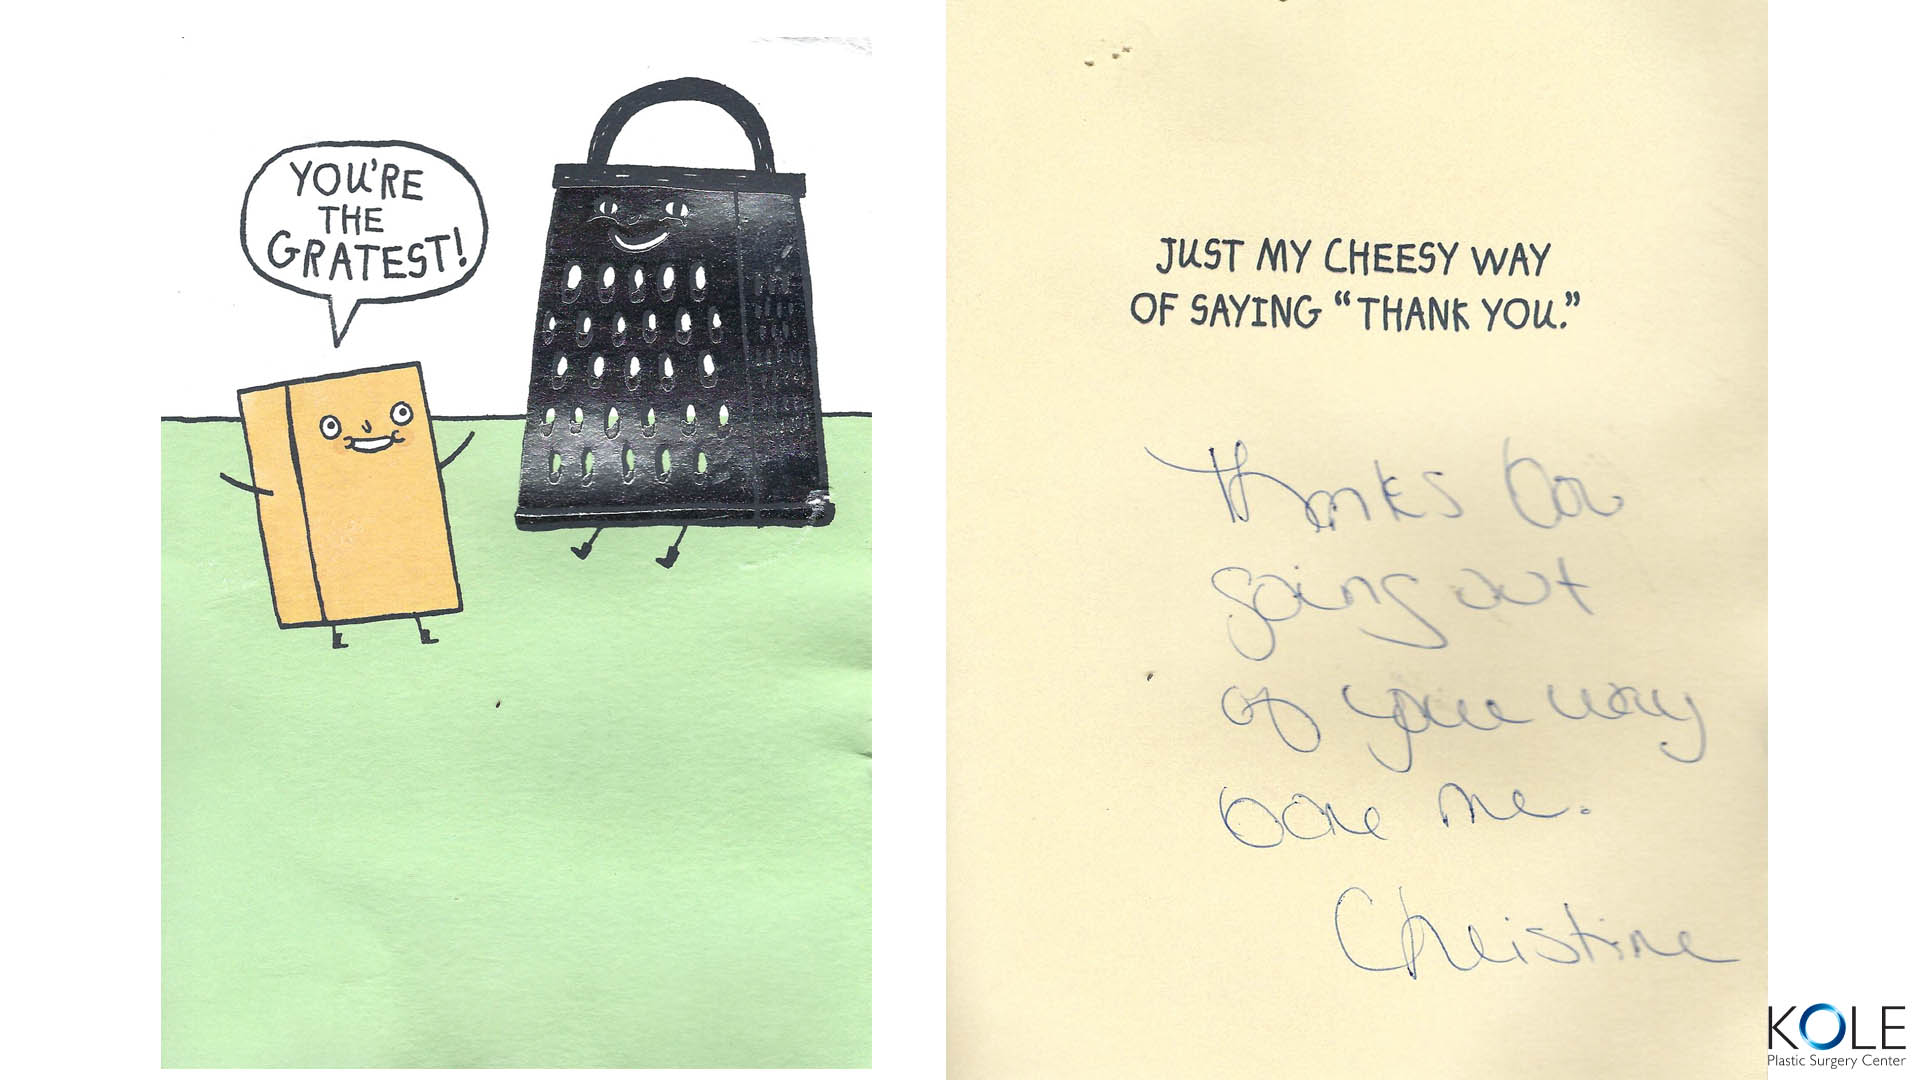 YOU'RE
THE
GRATEST!
JUST MY CHEESY WAY
OF SAYING "THANK YOU."
Thanks for
going out
of your way
for me.
Christine
KOLE
Plastic Surgery Center